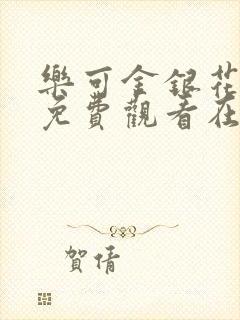 樂可金銀花
免費觀看在
賀情